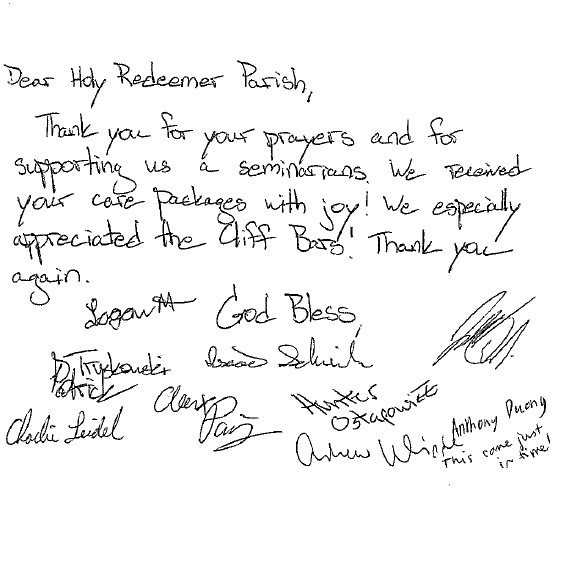 Dear Holy Redeemer Parish,
Thank you for your prayers and for
supporting us a seminarians. We received
your care packages with joy! We especially
appreciated the Cliff Bars! Thank you
again.
God Bless,
Logan M
Patrick
Isaac
Hunter
Charlie Leidel
Andrew
Anthony Duong
This came just
in time!